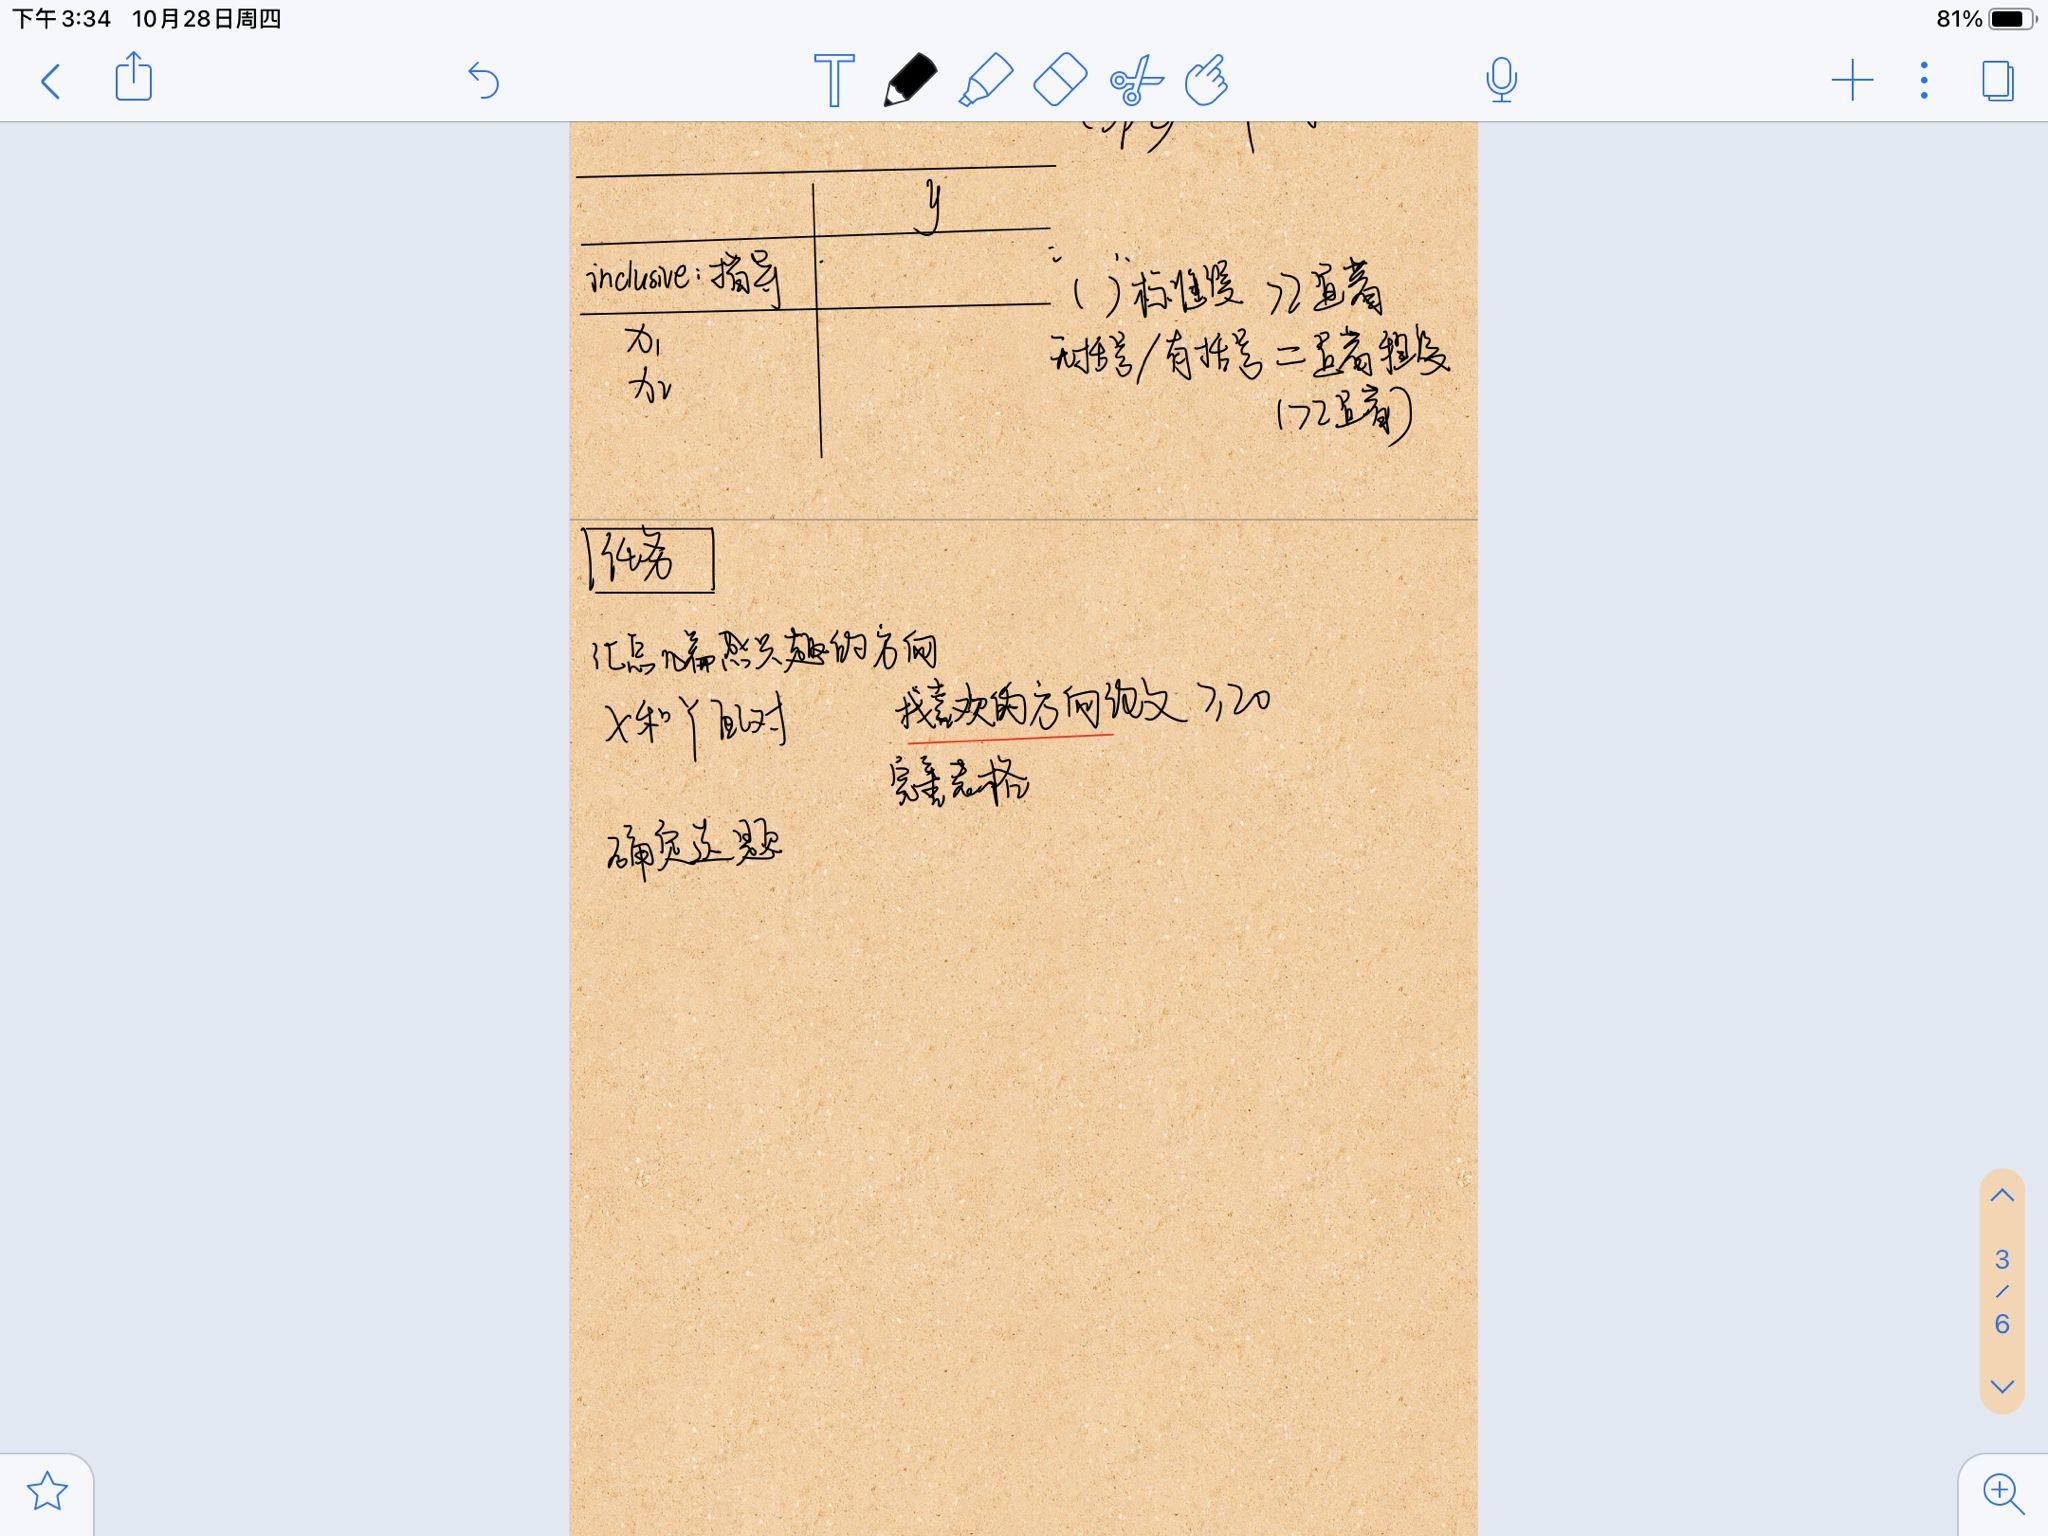 下午3:34 10月28日周四
81%
y
inclusive: 指导
x1
x2
( ) 标准误 >2 显著
无括号/有括号 = 显著程度
(>2显著)
任务
汇总几篇感兴趣的方向
X和Y配对
找喜欢的方向论文 ≥20
完善表格
确定选题
3
/
6